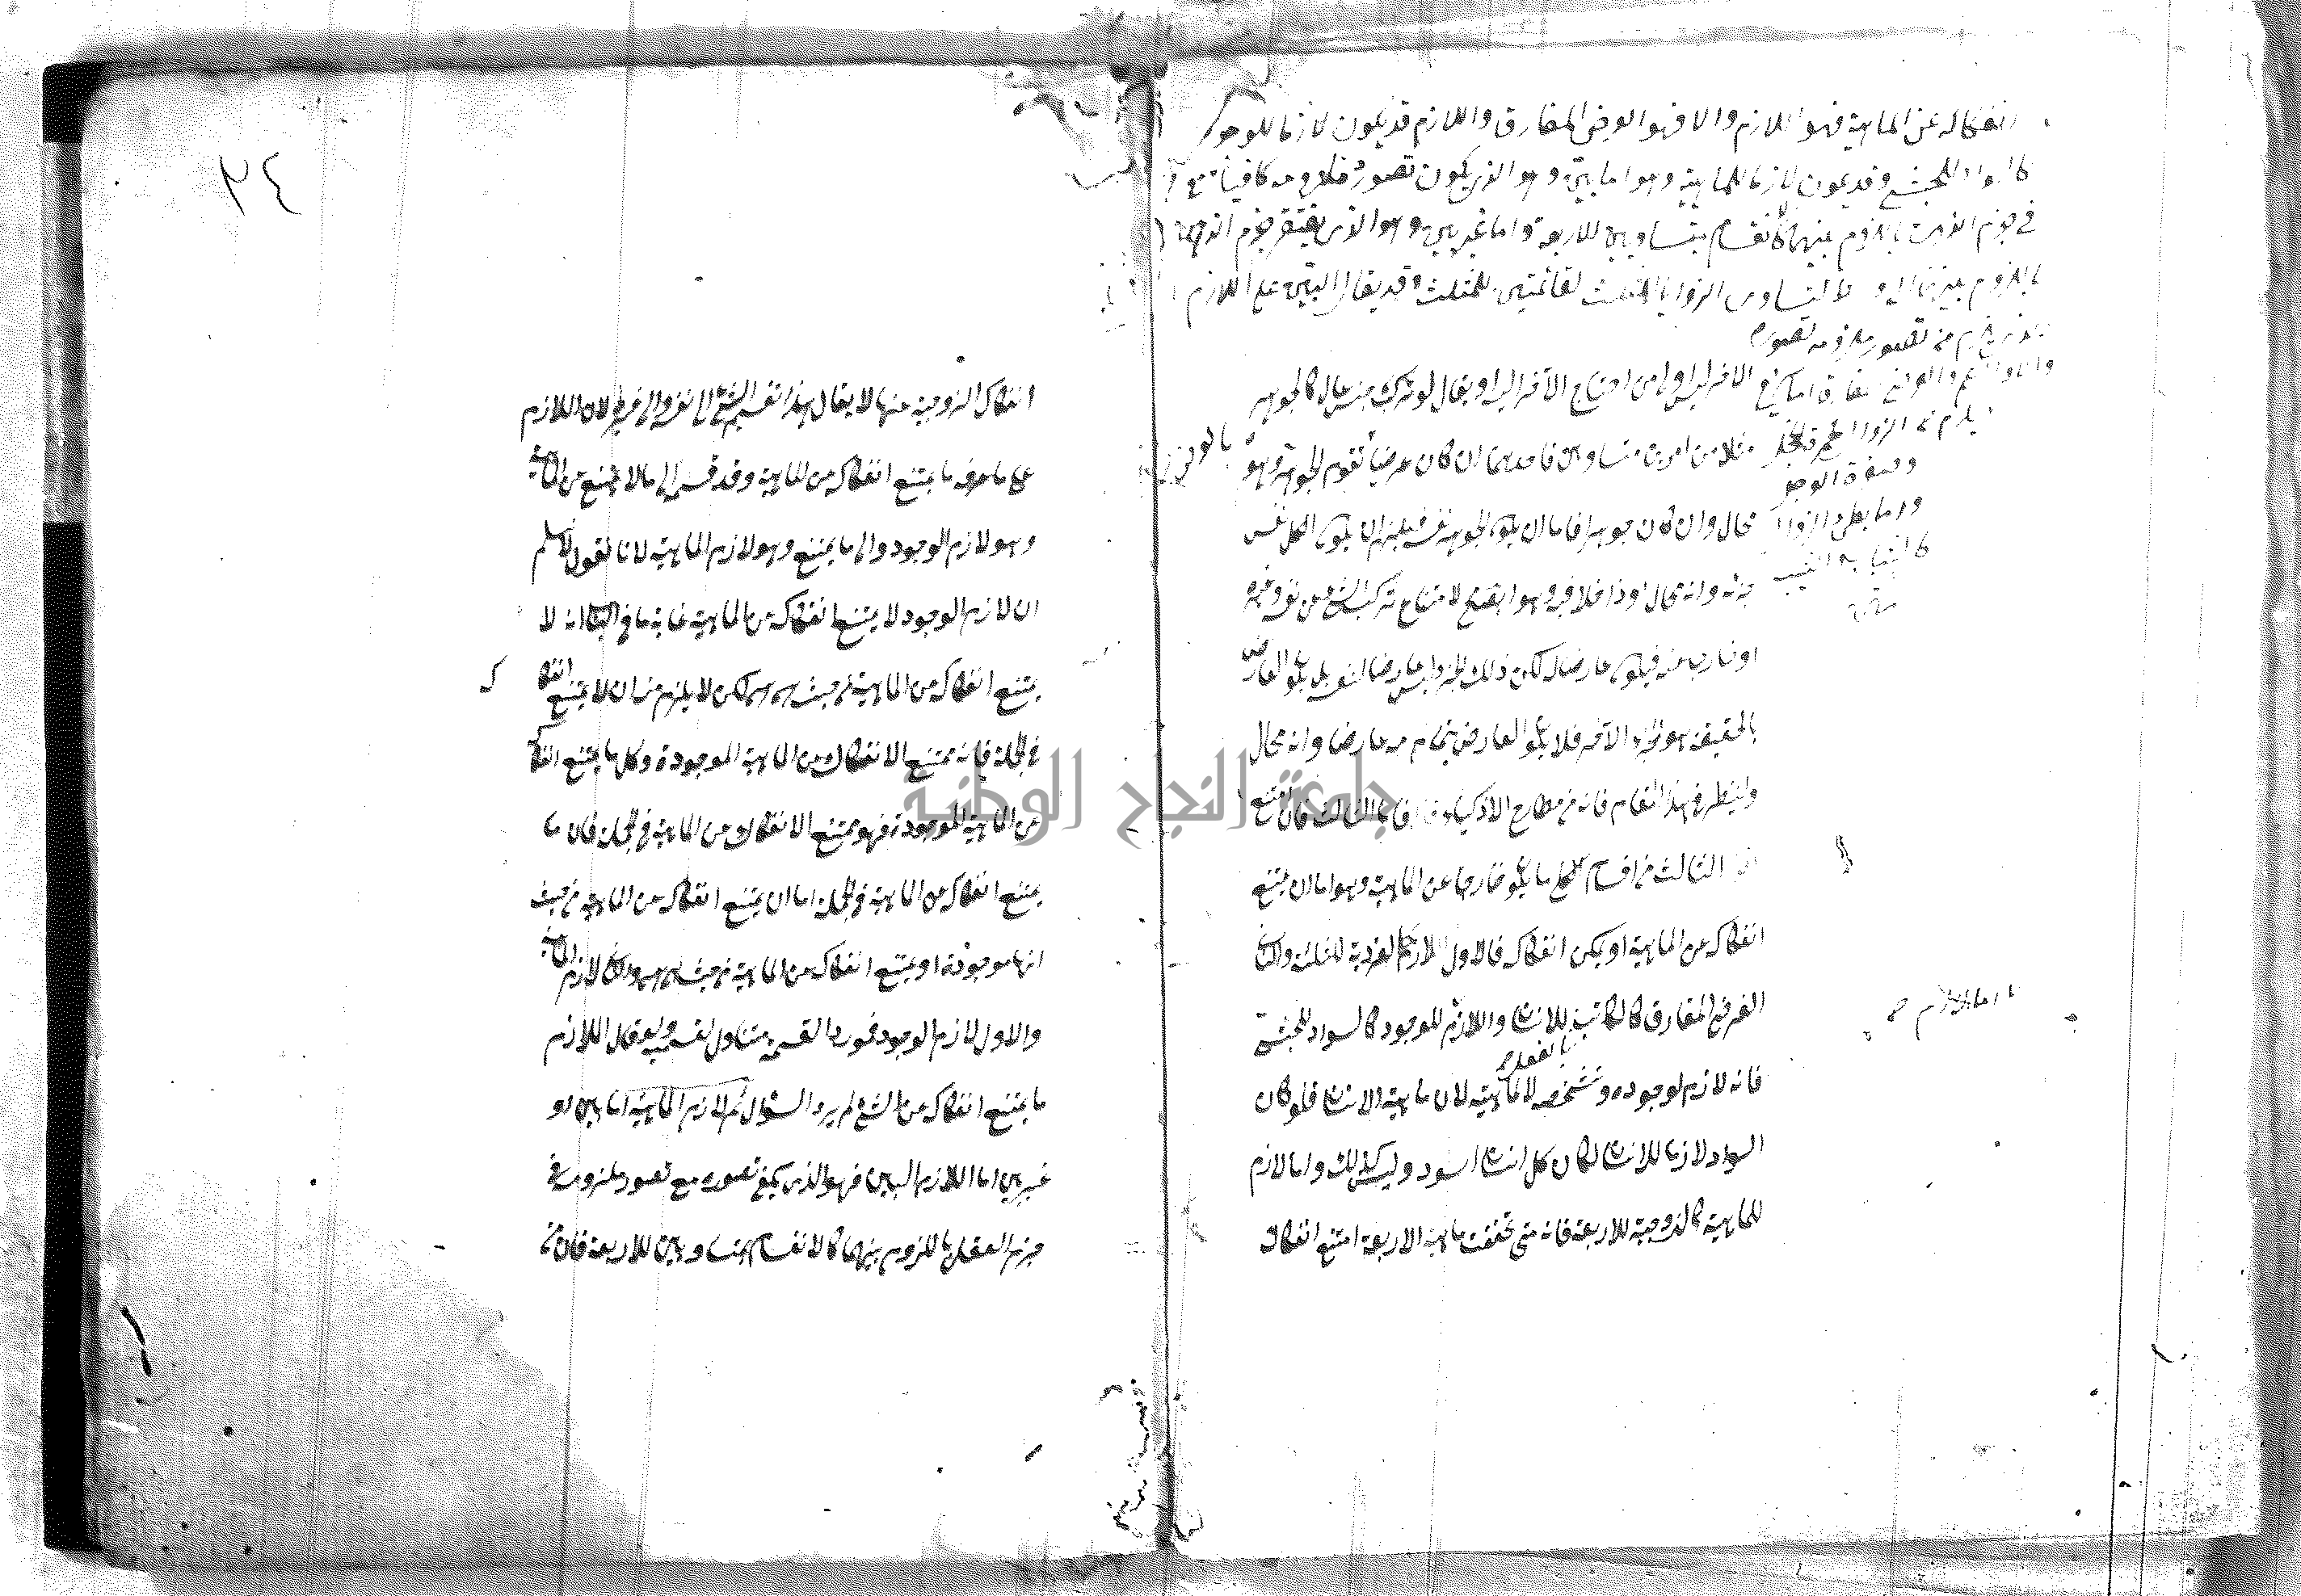 انفكاكه عن الماهية فهو اللازم والا فهو العرض المفارق واللازم قد يكون لازما للوجود
كالسواد للحبشي وقد يكون لازما للماهية وهو اما بين وهو الذي يكون تصوره مع تصور ملزومه كافيا
في جزم الذهن باللزوم بينهما كالانقسام بمتساويين للاربعة واما غير بين وهو الذي يفتقر جزم الذهن
باللزوم بينهما الى وسط كتساوي الزوايا الثلاث لقائمتين للمثلث وقد يقال البين على اللازم
الذي يلزم من تصور ملزومه تصوره
والاول اعم والعرض المفارق اما سريع
الزوال كحمرة الخجل
وصفرة الوجل
واما بطئ الزوال
كالشيب والشباب
الاخر ليس اولى من احتياج الآخر اليه او يقال لو تركب جنس عال كالجوهر
مثلا من امرين متساويين فاحدهما ان كان عرضا تقوم الجوهر بالعرض وهو
محال وان كان جوهرا فاما ان يكون الجوهر نفسه فيلزم ان يكون الكل نفس
جزئه وانه محال او داخلا فيه وهو ايضا محال لامتناع تركب الشئ من نفسه وغيره
او خارجا عنه فيكون عارضا له لكن ذلك الجزء ليس عارضا لنفسه بل يكون العارض
بالحقيقة هو الجزء الآخر فلا يكون العارض بتمامه عارضا وانه محال
ولينظر في هذا المقام فانه من مطارح الاذكياء قال واما الثالث فان امتنع
اقول الثالث من اقسام الكلي ما يكون خارجا عن الماهية وهو اما ان يمتنع
انفكاكه عن الماهية او يمكن انفكاكه فالاول اللازم كالفردية للثلثة والثاني
العرض المفارق كالكاتب بالفعل للانسان واللازم اما لازم للوجود كالسواد للحبشي
فانه لازم لوجوده وتشخصه لا لماهيته لان ماهية الانسان فلو كان
السواد لازما للانسان لكان كل انسان اسود وليس كذلك واما لازم
للماهية كالزوجية للاربعة فانه متى تحققت ماهية الاربعة امتنع انفكاك
٣٤
انفكاك الزوجية عنها لا يقال هذا تقسيم الشئ الى نفسه والى غيره لان اللازم
على ما عرفه ما يمتنع انفكاكه عن الماهية وقد قسمه الى ما لا يمتنع عن الماهية
وهو لازم الوجود والى ما يمتنع وهو لازم الماهية لانا نقول لا نسلم
ان لازم الوجود لا يمتنع انفكاكه عن الماهية غاية ما في الباب انه لا
يمتنع انفكاكه عن الماهية من حيث هي هي لكن لا يلزم منه ان لا يمتنع انفكاكه
في الجملة فانه ممتنع الانفكاك عن الماهية الموجودة وكل ما يمتنع انفكاكه
عن الماهية الموجودة فهو ممتنع الانفكاك عن الماهية في الجملة فان ما
يمتنع انفكاكه عن الماهية في الجملة اما ان يمتنع انفكاكه عن الماهية من حيث
انها موجودة او يمتنع انفكاكه عن الماهية من حيث هي هي والثاني لازم الماهية
والاول لازم الوجود فمورد القسمة متناول لقسميه ولو قال اللازم
ما يمتنع انفكاكه عن الشئ لم يرد السؤال ثم لازم الماهية اما بين او
غير بين اما اللازم البين فهو الذي يكفي تصوره مع تصور ملزومه في
جزم العقل باللزوم بينهما كالانقسام بمتساويين للاربعة فان من
جامعة النجاح الوطنية